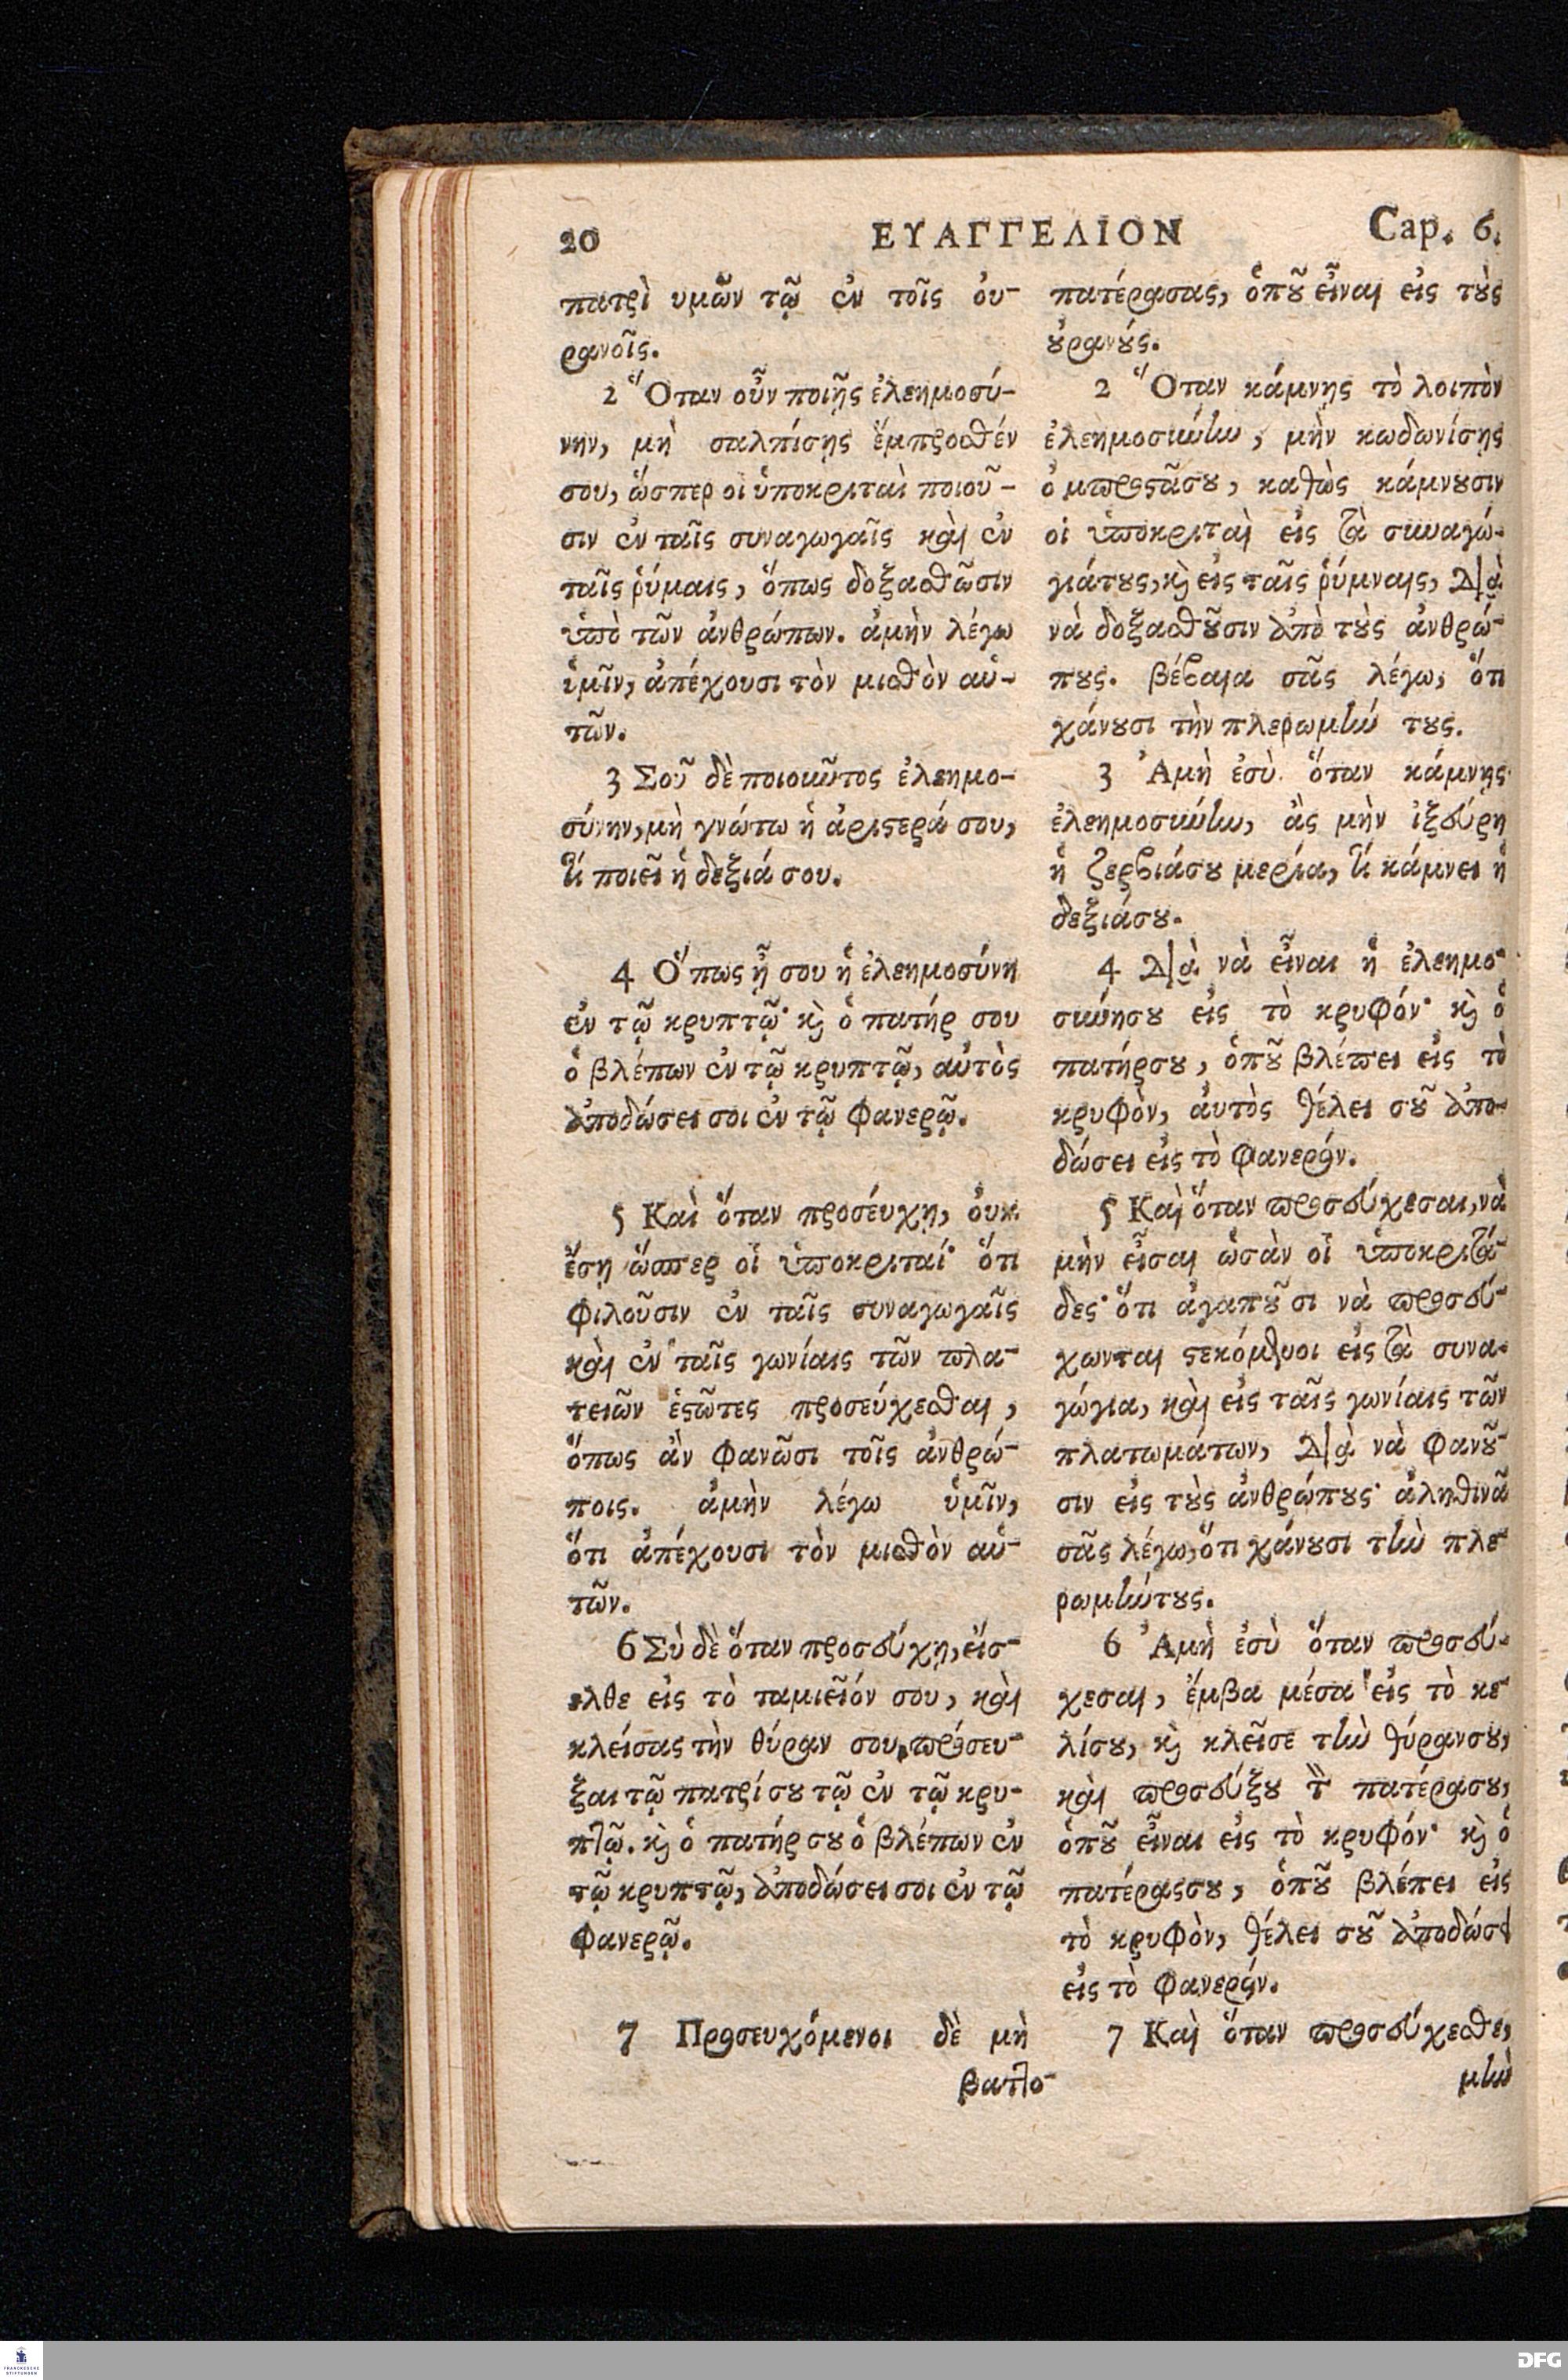 20 ΕΥΑΓΓΕΛΙΟΝ Cap. 6.
πατρὶ υμῶν τῷ ἐν τοῖς ὀυ-
ρανοῖς.
2 Ὅταν οὖν ποιῇς ἐλεημοσύ-
νην, μὴ σαλπίσῃς ἔμπροσθέν
σου, ὥσπερ οἱ ὑποκριταὶ ποιοῦ-
σιν ἐν ταῖς συναγωγαῖς καὶ ἐν
ταῖς ῥύμαις, ὅπως δοξασθῶσιν
ὑπὸ τῶν ἀνθρώπων. ἀμὴν λέγω
ὑμῖν, ἀπέχουσι τὸν μισθὸν αὑ-
τῶν.
3 Σοῦ δὲ ποιοιῶτος ἐλεημο-
σύνην, μὴ γνώτω ἡ ἀριστερά σου,
τί ποιεῖ ἡ δεξιά σου.
4 Ὅπως ᾖ σου ἡ ἐλεημοσύνη
ἐν τῷ κρυπτῷ· καὶ ὁ πατήρ σου
ὁ βλέπων ἐν τῷ κρυπτῷ, αὐτὸς
ἀποδώσει σοι ἐν τῷ φανερῷ.
5 Καὶ ὅταν προσέυχῃ, ὀυκ
ἔσῃ ὥσπερ οἱ ὑποκριταί· ὅτι
φιλοῦσιν ἐν ταῖς συναγωγαῖς
καὶ ἐν ταῖς γωνίαις τῶν πλα-
τειῶν ἑστῶτες προσεύχεσθαι,
ὅπως ἀν φανῶσι τοῖς ἀνθρώ-
ποις. ἀμὴν λέγω ὑμῖν,
ὅτι ἀπέχουσι τὸν μισθὸν αὑ-
τῶν.
6 Σὺ δὲ ὅταν προσεύχῃ, εἴσ-
ελθε εἰς τὸ ταμιεῖόν σου, καὶ
κλείσας τὴν θύραν σου, πρόσευ-
ξαι τῷ πατρί σου τῷ ἐν τῷ κρυ-
πτῷ. καὶ ὁ πατήρ σου ὁ βλέπων ἐν
τῷ κρυπτῷ, ἀποδώσει σοι ἐν τῷ
φανερῷ.
7 Προσευχόμενοι δὲ μὴ
βαττο-
πατέρασας, ὁποῦ εἶναι εἰς τοὺς
οὐρανούς.
2 Ὅταν κάμνῃς τὸ λοιπὸν
ἐλεημοσύνην, μὴν κωδωνίσῃς
ὀμπροστᾶσου, καθὼς κάμνουσιν
οἱ ὑποκριταὶ εἰς τὰ συναγώ-
γιάτους, καὶ εἰς ταῖς ῥύμναις, διὰ
νὰ δοξασθοῦσιν ἀπὸ τοὺς ἀνθρώ-
πους. βέβαια σᾶς λέγω, ὅτι
χάνουσι τὴν πλερωμήν τους.
3 Ἀμὴ ἐσὺ ὅταν κάμνῃς
ἐλεημοσύνην, ἂς μὴν ἰξεύρῃ
ἡ ζερβιάσου μερία, τί κάμνει ἡ
δεξιάσου.
4 Διὰ νὰ εἶναι ἡ ἐλεημο-
σύνησου εἰς τὸ κρυφόν· καὶ ὁ
πατήρσου, ὁποῦ βλέπει εἰς τὸ
κρυφὸν, ἀυτὸς θέλει σοῦ ἀπο-
δώσει εἰς τὸ φανερόν.
5 Καὶ ὅταν προσεύχεσαι, νὰ
μὴν εἶσαι ὡσὰν οἱ ὑποκριτά-
δες· ὅτι ἀγαποῦσι νὰ προσεύ-
χωνται στεκόμενοι εἰς τὰ συνα-
γώγια, καὶ εἰς ταῖς γωνίαις τῶν
πλατωμάτων, διὰ νὰ φανοῦ-
σιν εἰς τοὺς ἀνθρώπους· ἀληθινὰ
σᾶς λέγω, ὅτι χάνουσι τὴν πλε-
ρωμήντους.
6 Ἀμὴ ἐσὺ ὅταν προσεύ-
χεσαι, ἔμβα μέσα εἰς τὸ κε-
λίσου, καὶ κλεῖσε τὴν θύρανσου,
καὶ προσεύξου τὸν πατέρασου,
ὁποῦ εἶναι εἰς τὸ κρυφόν· καὶ ὁ
πατέρασσου, ὁποῦ βλέπει εἰς
τὸ κρυφὸν, θέλει σοῦ ἀποδώσει
εἰς τὸ φανερόν.
7 Καὶ ὅταν προσεύχεσθε,
μὴν